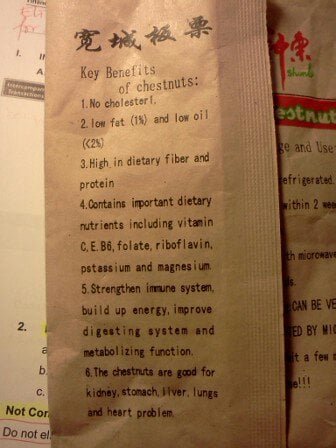 宽城板栗
Key Benefits
of chestnuts:
1.No cholesterl.
2.low fat (1%) and low oil
(<2%)
3.High in dietary fiber and
protein
4.Contains important dietary
nutrients including vitamin
C,E.B6,folate,riboflavin,
pstassium and magnesium.
5.Strengthen immune system,
build up energy,improve
digesting system and
metabolizing function.
6.The chestnuts are good for
kidney,stomach,liver,lungs
and heart problem.
Intercompany
Transactions
2.
a
b.
c.
Not Con
Do not el
神栗
shenli
estnut
ge and Use
refrigerated
within 2 wee
th microwave
CAN BE VE
ED BY MIC
it a few m
e!!!